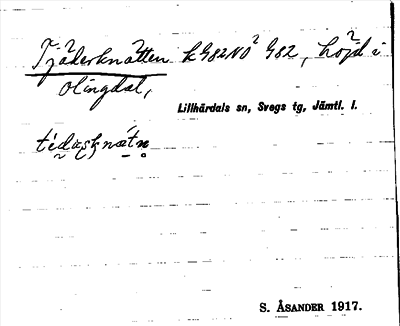 Tjäderknatten k 982 NO² 982, höjd i
Olingdal,
Lillhärdals sn, Svegs tg, Jämtl. l.
S. ÅSANDER 1917.